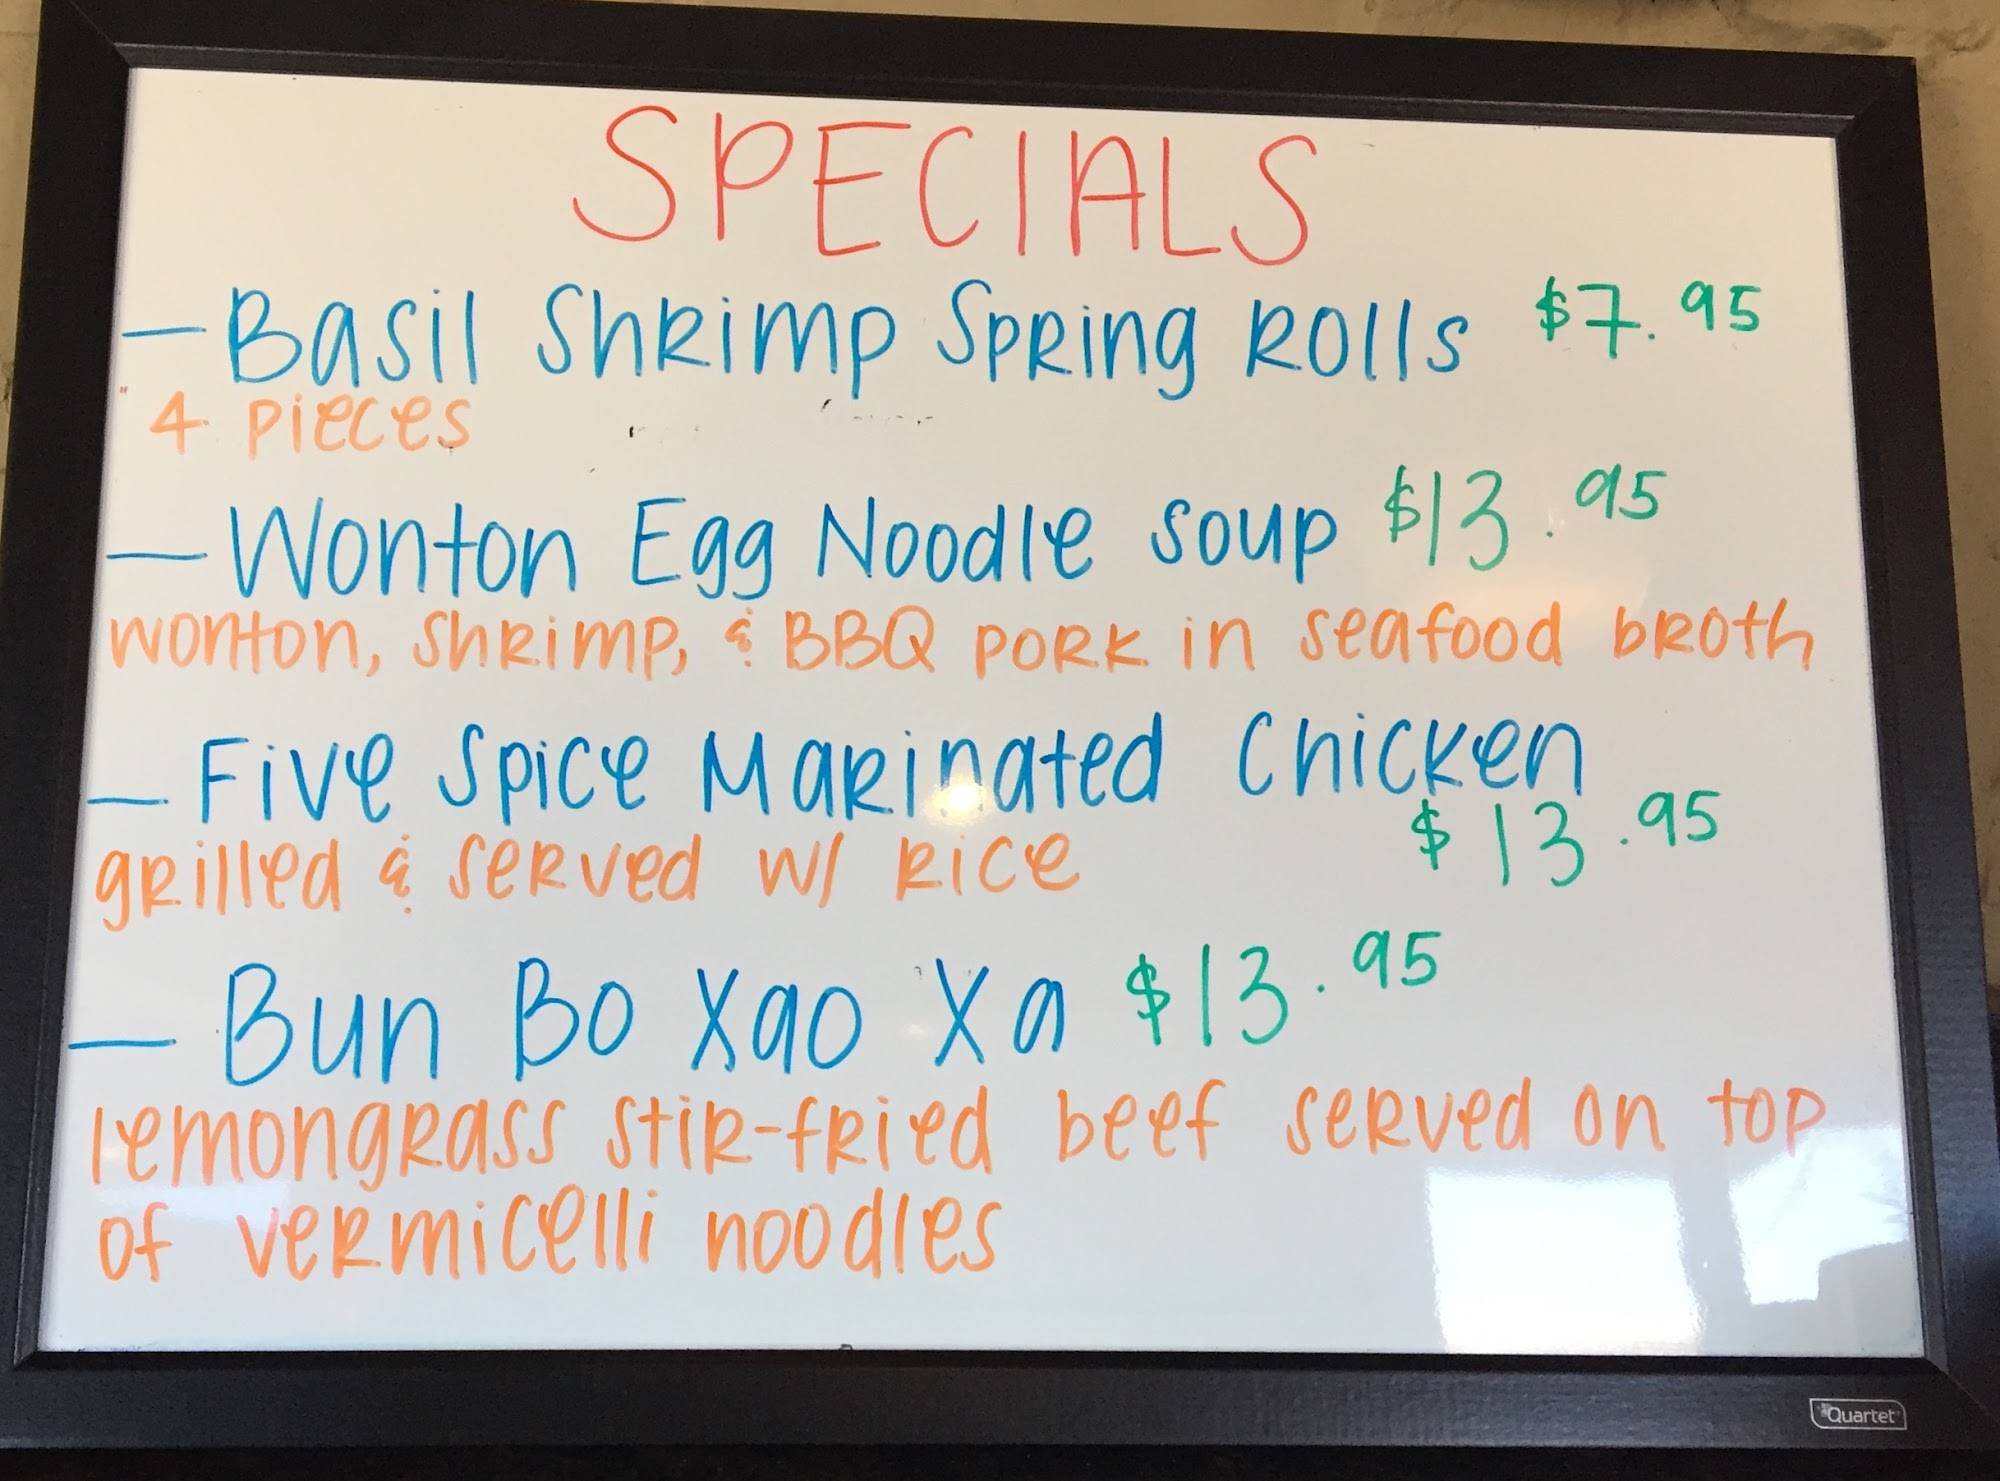 SPECIALS
— Basil Shrimp Spring Rolls $7.95
4 pieces
— Wonton Egg Noodle soup $13.95
wonton, shrimp, & BBQ pork in seafood broth
— Five Spice Marinated Chicken
$13.95
grilled & served w/ rice
— Bun Bo Xao Xa $13.95
lemongrass stir-fried beef served on top
of vermicelli noodles
Quartet